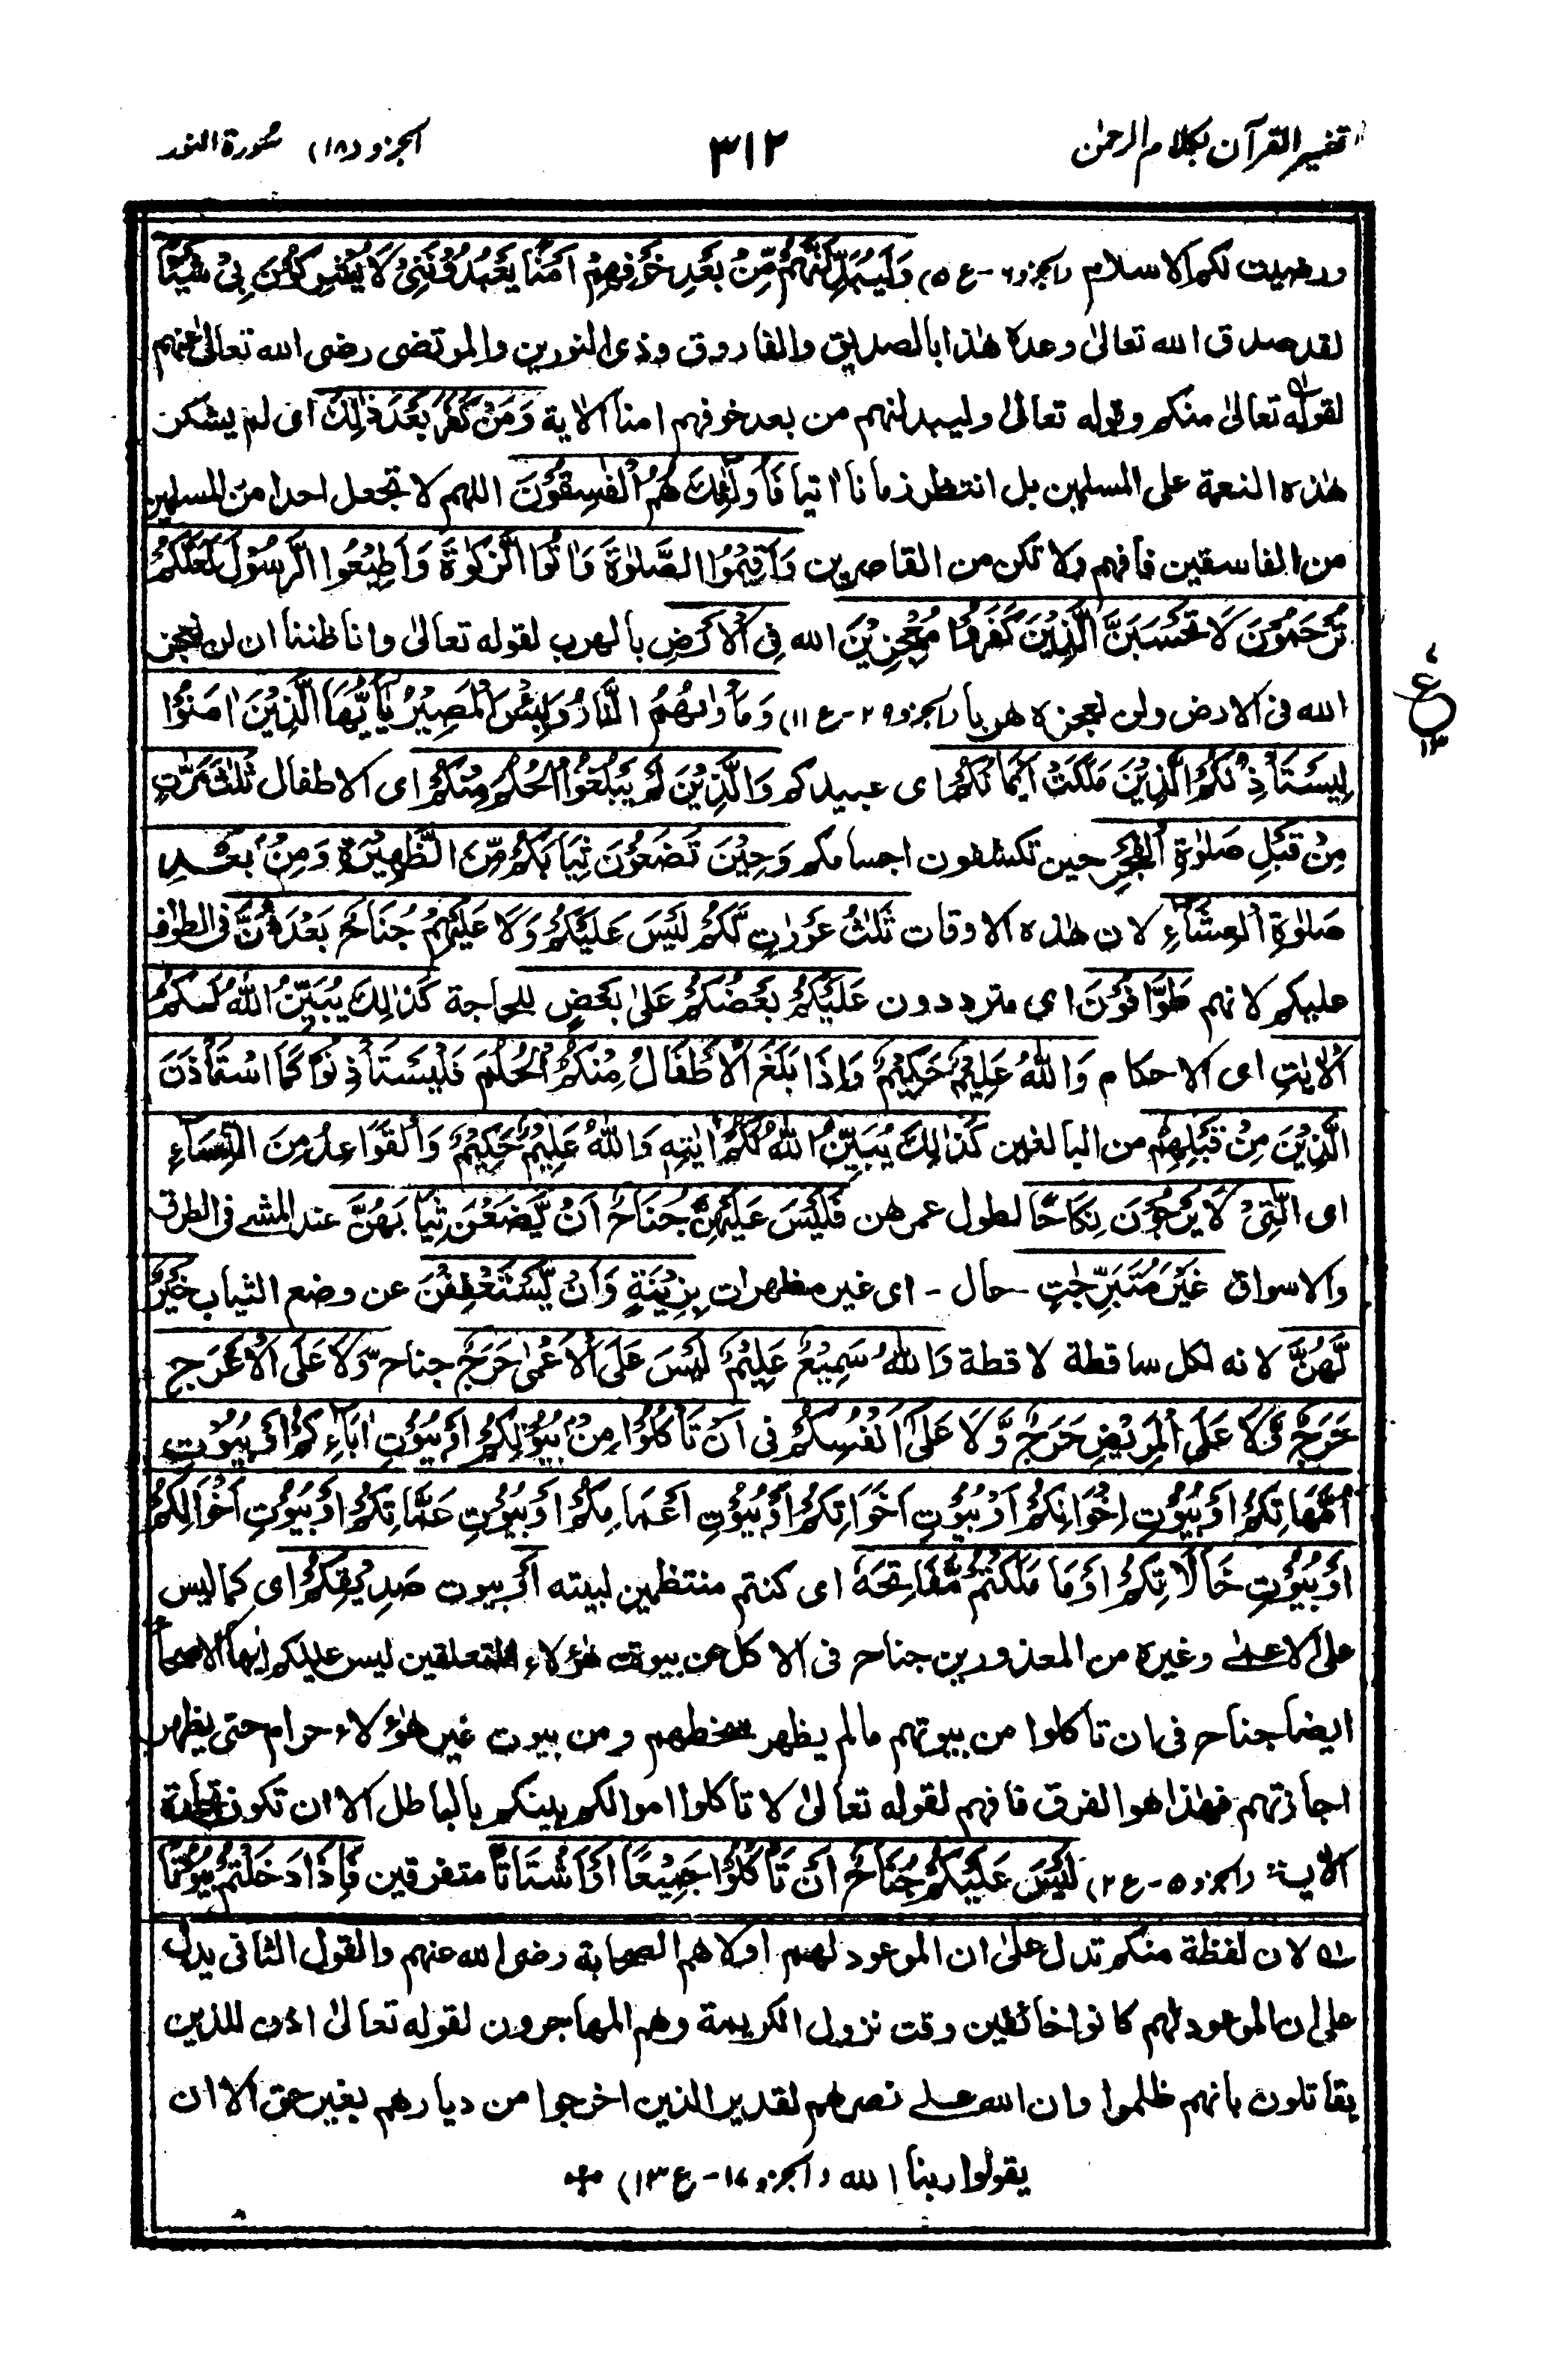 تفسیر القرآن بکلام الرحمن
۳۱۲
الجزو (۱۸) سُورة النور
ورضيت لكم الاسلام (الجزو ۶ - ع ۵) وَلَيُبَدِّلَنَّهُمْ مِّنْ بَعْدِ خَوْفِهِمْ اَمْنًا يَعْبُدُوْنَنِيْ لَا يُشْرِكُوْنَ بِيْ شَيْئًا
لقد صدق الله تعالىٰ وعده هٰذا بالصديق والفاروق وذي النورين والمرتضى رضى الله تعالىٰ عنهم
لقوله تعالىٰ منكم وقوله تعالىٰ وليبدلنهم من بعد خوفهم امنا الاٰية وَمَنْ كَفَرَ بَعْدَ ذٰلِكَ اى لم يشكر
هٰذه النعمة على المسلمين بل انتظر زمانا اٰتيا فَاُولٰٓئِكَ هُمُ الْفٰسِقُوْنَ اللهم لا تجعل احدا من المسلمين
من الفاسقين فافهم ولا تكن من القاصرين وَاَقِيْمُوا الصَّلٰوةَ وَاٰتُوا الزَّكٰوةَ وَاَطِيْعُوا الرَّسُوْلَ لَعَلَّكُمْ
تُرْحَمُوْنَ لَا تَحْسَبَنَّ الَّذِيْنَ كَفَرُوْا مُعْجِزِيْنَ الله فِى الْاَرْضِ بالهرب لقوله تعالىٰ وانا ظننا ان لن نعجز
الله فى الارض ولن نعجزه هربا (الجزو ۲۹ - ع ۱۱) وَمَاْوٰىهُمُ النَّارُ وَلَبِئْسَ الْمَصِيْرُ يٰٓاَيُّهَا الَّذِيْنَ اٰمَنُوْا
لِيَسْتَاْذِنْكُمُ الَّذِيْنَ مَلَكَتْ اَيْمَانُكُمْ اى عبيدكم وَالَّذِيْنَ لَمْ يَبْلُغُوا الْحُلُمَ مِنْكُمْ اى الاطفال ثَلٰثَ مَرّٰتٍ
مِنْ قَبْلِ صَلٰوةِ الْفَجْرِ حين تكشفون اجسامكم وَحِيْنَ تَضَعُوْنَ ثِيَابَكُمْ مِّنَ الظَّهِيْرَةِ وَمِنْ بَعْدِ
صَلٰوةِ الْعِشَآءِ لان هٰذه الاوقات ثَلٰثُ عَوْرٰتٍ لَّكُمْ لَيْسَ عَلَيْكُمْ وَلَا عَلَيْهِمْ جُنَاحٌ بَعْدَهُنَّ فى الطواف
عليكم لانهم طَوَّافُوْنَ اى مترددون عَلَيْكُمْ بَعْضُكُمْ عَلٰى بَعْضٍ للحاجة كَذٰلِكَ يُبَيِّنُ اللهُ لَكُمُ
الْاٰيٰتِ اى الاحكام وَاللهُ عَلِيْمٌ حَكِيْمٌ وَاِذَا بَلَغَ الْاَطْفَالُ مِنْكُمُ الْحُلُمَ فَلْيَسْتَاْذِنُوْا كَمَا اسْتَاْذَنَ
الَّذِيْنَ مِنْ قَبْلِهِمْ من البالغين كَذٰلِكَ يُبَيِّنُ اللهُ لَكُمْ اٰيٰتِهٖ وَاللهُ عَلِيْمٌ حَكِيْمٌ وَالْقَوَاعِدُ مِنَ النِّسَآءِ
اى الّٰتِيْ لَا يَرْجُوْنَ نِكَاحًا لطول عمرهن فَلَيْسَ عَلَيْهِنَّ جُنَاحٌ اَنْ يَّضَعْنَ ثِيَابَهُنَّ عند المشے فى الطرق
والاسواق غَيْرَ مُتَبَرِّجٰتٍ حال - اى غير مظهرات بِزِيْنَةٍ وَاَنْ يَّسْتَعْفِفْنَ عن وضع الثياب خَيْرٌ
لَّهُنَّ لانه لكل ساقطة لاقطة وَاللهُ سَمِيْعٌ عَلِيْمٌ لَيْسَ عَلَى الْاَعْمٰى حَرَجٌ جناح وَّلَا عَلَى الْاَعْرَجِ
حَرَجٌ وَّلَا عَلَى الْمَرِيْضِ حَرَجٌ وَّلَا عَلٰٓى اَنْفُسِكُمْ فى اَنْ تَاْكُلُوْا مِنْ بُيُوْتِكُمْ اَوْ بُيُوْتِ اٰبَآءِكُمْ اَوْ بُيُوْتِ
اُمَّهَاتِكُمْ اَوْ بُيُوْتِ اِخْوَانِكُمْ اَوْ بُيُوْتِ اَخَوَاتِكُمْ اَوْ بُيُوْتِ اَعْمَامِكُمْ اَوْ بُيُوْتِ عَمَّاتِكُمْ اَوْ بُيُوْتِ اَخْوَالِكُمْ
اَوْ بُيُوْتِ خَالَاتِكُمْ اَوْ مَا مَلَكْتُمْ مَّفَاتِحَهٗ اى كنتم منتظمين لبيته اَوْ بيوت صَدِيْقِكُمْ اى كما ليس
على الاعمے وغيره من المعذورين جناح فى الاكل من بيوت هٰؤلاء المتعلقين ليس عليكم ايها الاصحاء
ايضا جناح فى ان تاكلوا من بيوتهم مالم يظهر سخطهم ومن بيوت غير هٰؤلاء حرام حتى يظهر
اجازتهم فهٰذا هو الفرق فافهم لقوله تعالىٰ لا تاكلوا اموالكم بينكم بالباطل الا ان تكون تجارة
الاٰية (الجزو ۵ - ع ۲) لَيْسَ عَلَيْكُمْ جُنَاحٌ اَنْ تَاْكُلُوْا جَمِيْعًا اَوْ اَشْتَاتًا متفرقين فَاِذَا دَخَلْتُمْ بُيُوْتًا
ع
۱۳
لان لفظة منكم تدل علىٰ ان الموعود لهم اولا هم الصحابة رضى الله عنهم والقول الثانى يدل
على ان الموعود لهم كانوا خائفين وقت نزول الكريمة وهم المهاجرون لقوله تعالىٰ اذن للذين
يقاتلون بانهم ظلموا وان الله علے نصرهم لقدير الذين اخرجوا من ديارهم بغير حق الا ان
يقولوا ربنا الله (الجزو ۱۷ - ع ۱۳)